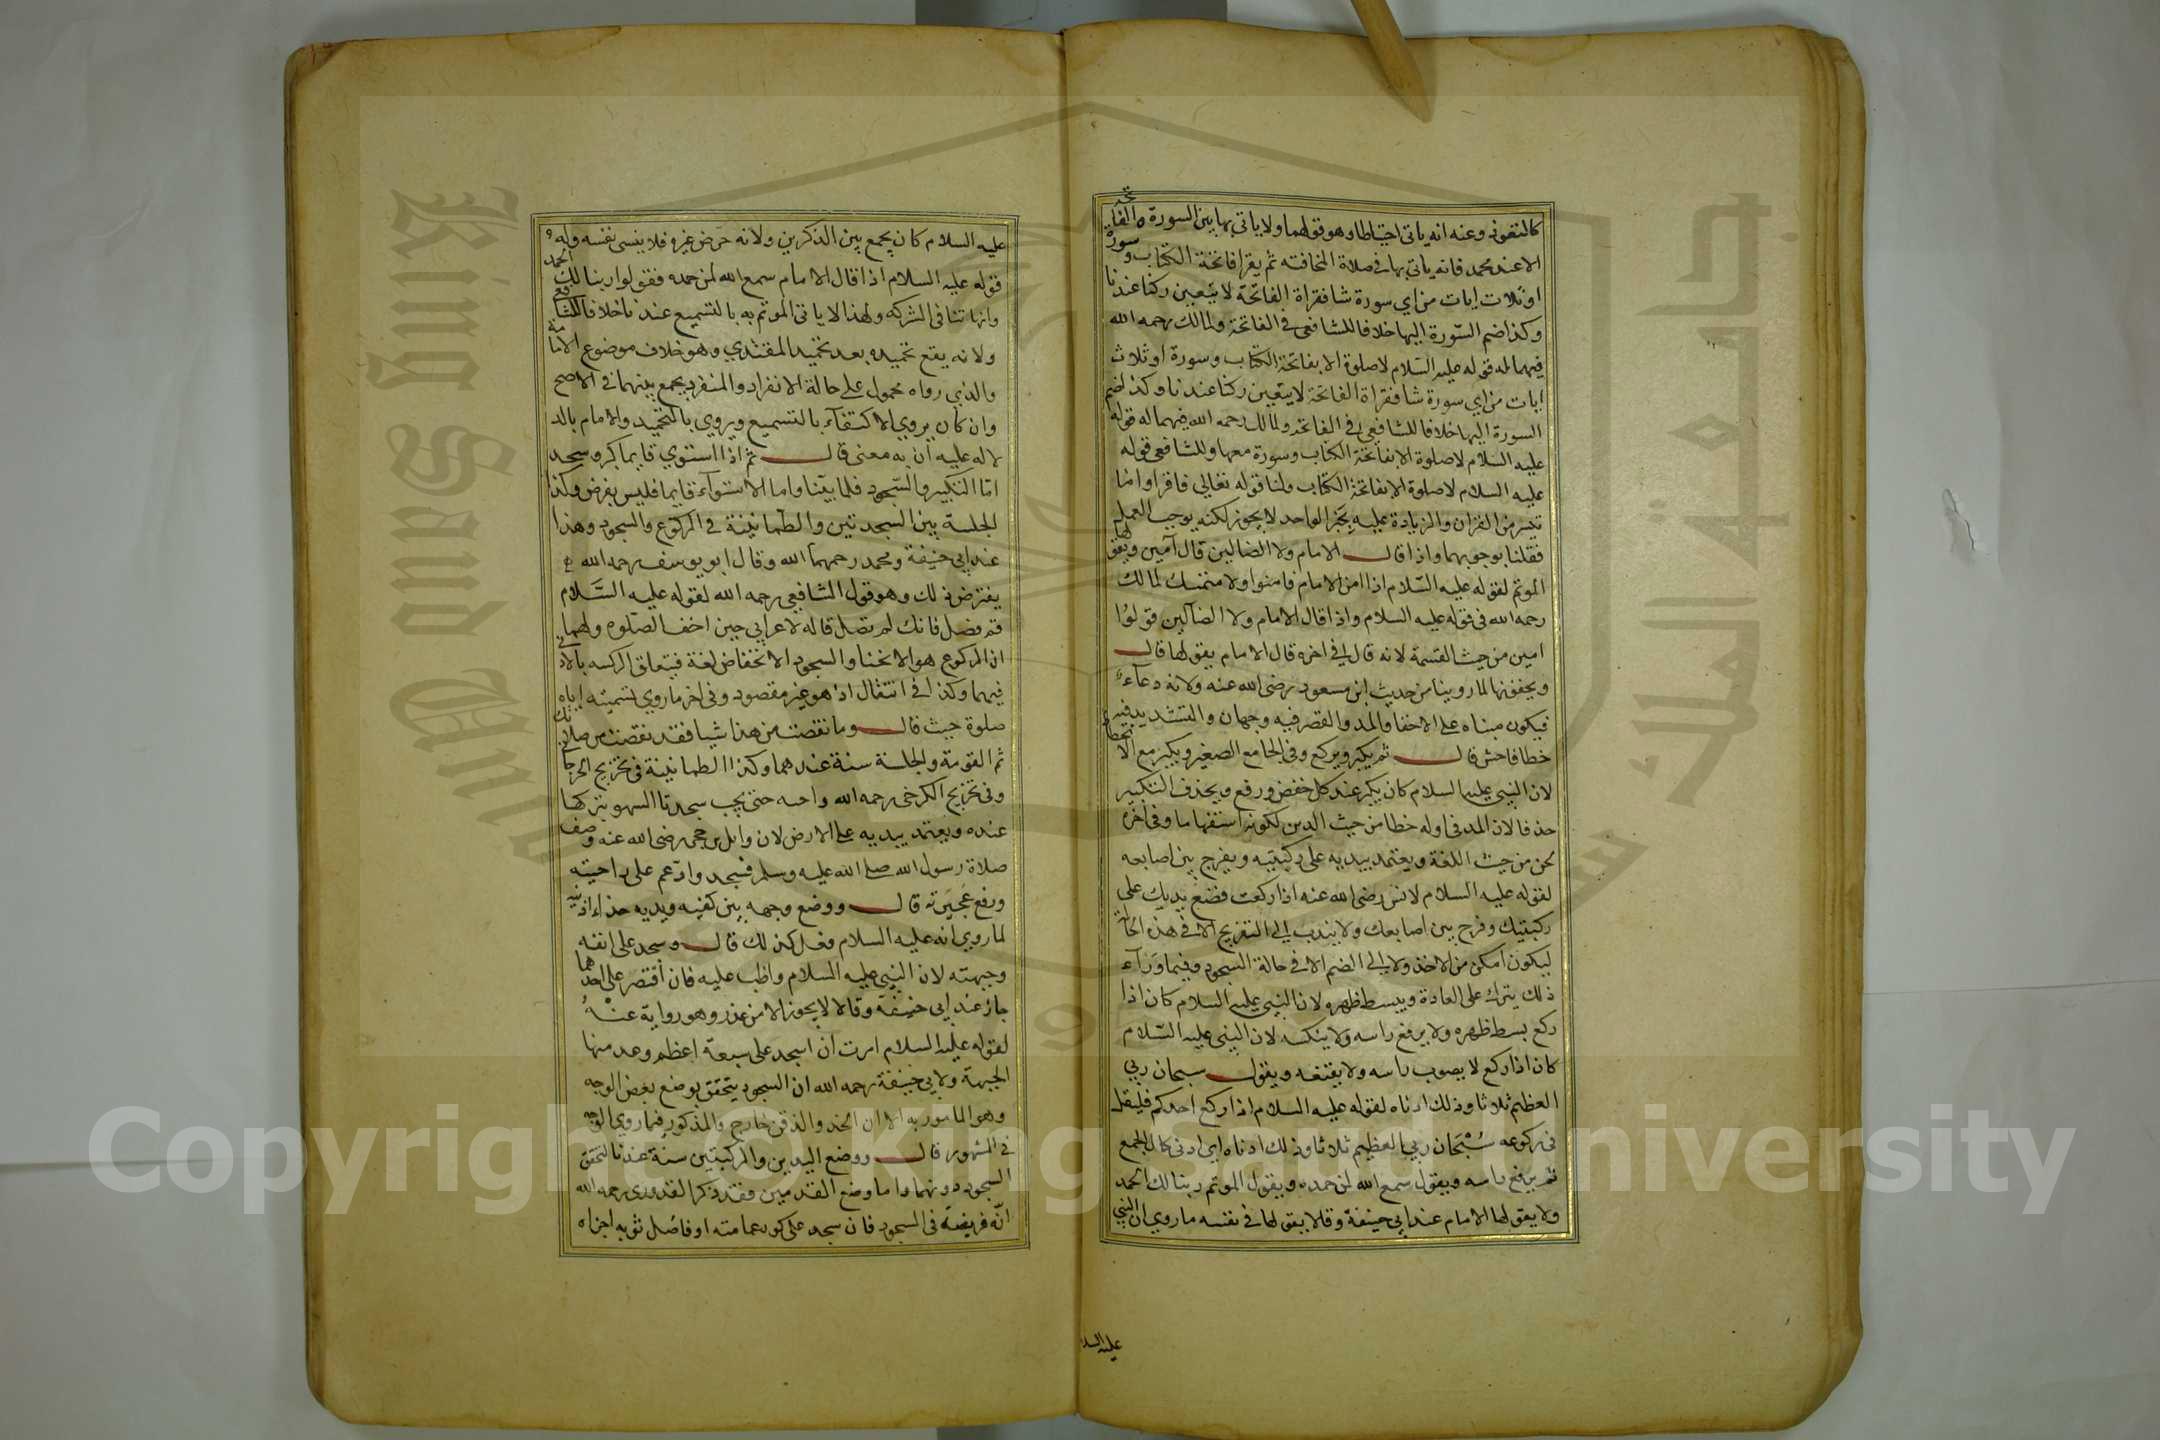 كالتعوذ وعنه انه ياتي احتياطا وهو قولهما ولا ياتي بها بين السورة والفاتحة
الا عند محمد فانه ياتي بها في صلاة المخافته ثم يقرا فاتحة الكتاب وسورة
او ثلاث ايات من اي سورة شا فقراة الفاتحة لا يتعين ركنا عندنا
وكذا ضم السورة اليها خلافا للشافعي في الفاتحة ولمالك رحمه الله
فيهما له قوله عليه السلام لا صلوة الا بفاتحة الكتاب وسورة او ثلاث
ايات من اي سورة شا فقراة الفاتحة لا يتعين ركنا عندنا وكذا ضم
السورة اليها خلافا للشافعي في الفاتحة ولمالك رحمه الله فيهما له قوله
عليه السلام لا صلوة الا بفاتحة الكتاب وسورة معها وللشافعي قوله
عليه السلام لا صلوة الا بفاتحة الكتاب ولنا قوله تعالي فاقراوا ما
تيسر من القران والزيادة عليه بخبر الواحد لا يجوز لكنه يوجب العمل
فقلنا بوجوبهما واذا قال الامام ولا الضالين قال آمين ويقولها
الموتم لقوله عليه السلام اذا امن الامام فامنوا ولا متمسك لمالك
رحمه الله في قوله عليه السلام واذا قال الامام ولا الضآلين قولوا
امين من حيث القسمة لانه قال في اخره قال الامام يقولها قال
ويخفونها لما روينا من حديث ابن مسعود رضي الله عنه ولانه دعآء
فيكون مبناه على الاخفا والمد والقصر فيه وجهان والتشديد فيه
خطا فاحش قال ثم يكبر ويركع وفي الجامع الصغير ويكبر مع الانحطاط
لان النبي عليه السلام كان يكبر عند كل خفض ورفع ويحذف التكبير
حذفا لان المد في اوله خطا من حيث الدين لكونه استفهاما وفي اخره
لحن من حيث اللغة ويعتمد بيديه على ركبتيه ويفرج بين اصابعه
لقوله عليه السلام لانس رضي الله عنه اذا ركعت فضع يديك على
ركبتيك وفرج بين اصابعك ولا يندب الي التفريج الا في هذه الحالة
ليكون امكن من الاخذ ولا الي الضم الا في حالة السجود وفيما ورآء
ذلك يترك على العادة ويبسط ظهره لان النبي عليه السلام كان اذا
ركع بسط ظهره ولا يرفع راسه ولا ينكسه لان النبي عليه السلام
كان اذا ركع لا يصوب راسه ولا يقنعه ويقول سبحان ربي
العظيم ثلاثا وذلك ادناه لقوله عليه السلام اذا ركع احدكم فليقل
في ركوعه سبحان ربي العظيم ثلاثا وذلك ادناه اي ادني كمال الجمع
ثم يرفع راسه ويقول سمع الله لمن حمده ويقول الموتم ربنا لك الحمد
ولا يقولها الامام عند ابي حنيفة وقالا يقولها في نفسه ما روي ان النبي
عليه السلا
عليه السلام كان يجمع بين الذكرين ولانه حرض غيره فلا ينسي نفسه وله
قوله عليه السلام اذا قال الامام سمع الله لمن حمده فقولوا ربنا لك الحمد
وانها تنافي الشركه ولهذا لا ياتي الموتم به بالتسميع عندنا خلافا للشافعي
ولانه يقع تحميده بعد تحميد المقتدي وهو خلاف موضوع الامامة
والذي رواه محمول علي حالة الانفراد والمنفرد يجمع بينهما في الاصح
وان كان يروي الاكتفآء بالتسميع ويروي بالتحميد والامام بالد
لاله عليه ان به معني قال ثم اذا استوي قايما كبر وسجد
امّا التكبير والسّجود فلما بيّنا واما الاستوآء قايما فليس بفرض وكذا
الجلسة بين السجدتين والطمانينة في الركوع والسجود وهذا
عند ابي حنيفة ومحمد رحمهما الله وقال ابو يوسف رحمه الله
يفترض ذلك وهو قول الشافعي رحمه الله لقوله عليه السَّلام
قم فصل فانك لم تصل قاله لاعرابي حين اخف الصلوه ولهما
ان الركوع هو الانحنا والسجود الانخفاض لغة فيتعلق الركسه بالادني
فيهما وكذا في انتقال اذ هو غير مقصود وفي اخر ما روي تسميته اياه
صلوة حيث قال وما نقصت من هذا شيا فقد نقصت من صلاتك
ثم القومة والجلسة سنة عندهما وكذا الطمانينة في تخريج الجرجاني
وفي تخريج الكرخي رحمه الله واجبه حتي يجب سجدتا السهو بتركها
عنده ويعتمد بيديه على الارض لان وايل بن حجر رضي الله عنه وصف
صلاة رسول الله صلى الله عليه وسلم فسجد وادّعم على راحتيه
ورفع عجيزته قال ووضع وجهه بين كفيه ويديه حذاء اذنيه
لما روي انه عليه السلام فعل كذلك قال وسجد على انفه
وجبهته لان النبي عليه السلام واظب عليه فان اقتصر على احدهما
جاز عند ابي حنيفة وقالا لا يجوز الا من عذر وهو رواية عنهُ
لقوله عليه السلام امرت ان اسجد على سبعة اعظم وعد منها
الجبهة ولابي حنيفة رحمه الله ان السجود يتحقق بوضع بعض الوجه
وهو المامور به الا ان الخد والذقن خارج والمذكور فيما روي الوجه
في المشهور قال ووضع اليدين والركبتين سنة عندنا لتحقق
السجود دونهما واما وضع القدمين فقد ذكر القدوري رحمه الله
انّه فريضة في السجود فان سجد على كور عمامته او فاضل ثوبه اجزاه
Copyright © King Saud University
King Saud University
جامعة الملك سعود